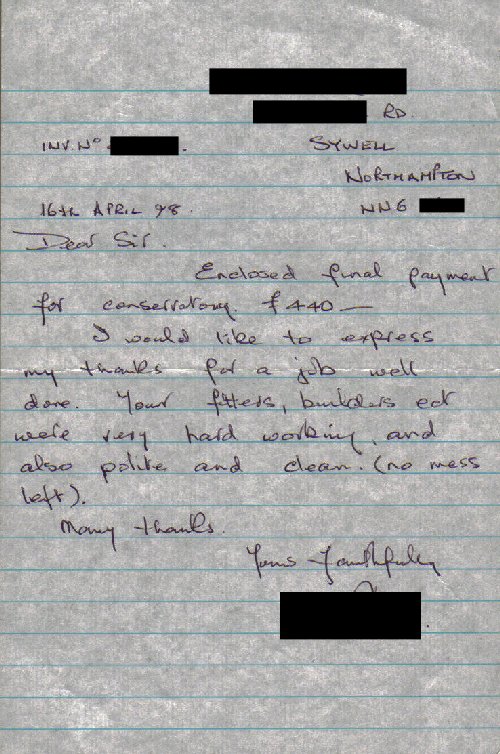 RD.
INV. Nº . SYWELL
NORTHAMPTON
16th APRIL 98. NN6
Dear Sir.
Enclosed final payment
for conservatory. £440 —
I would like to express
my thanks for a job well
done. Your fitters, builders ect
were very hard working, and
also polite and clean. (no mess
left).
Many thanks.
Yours faithfully